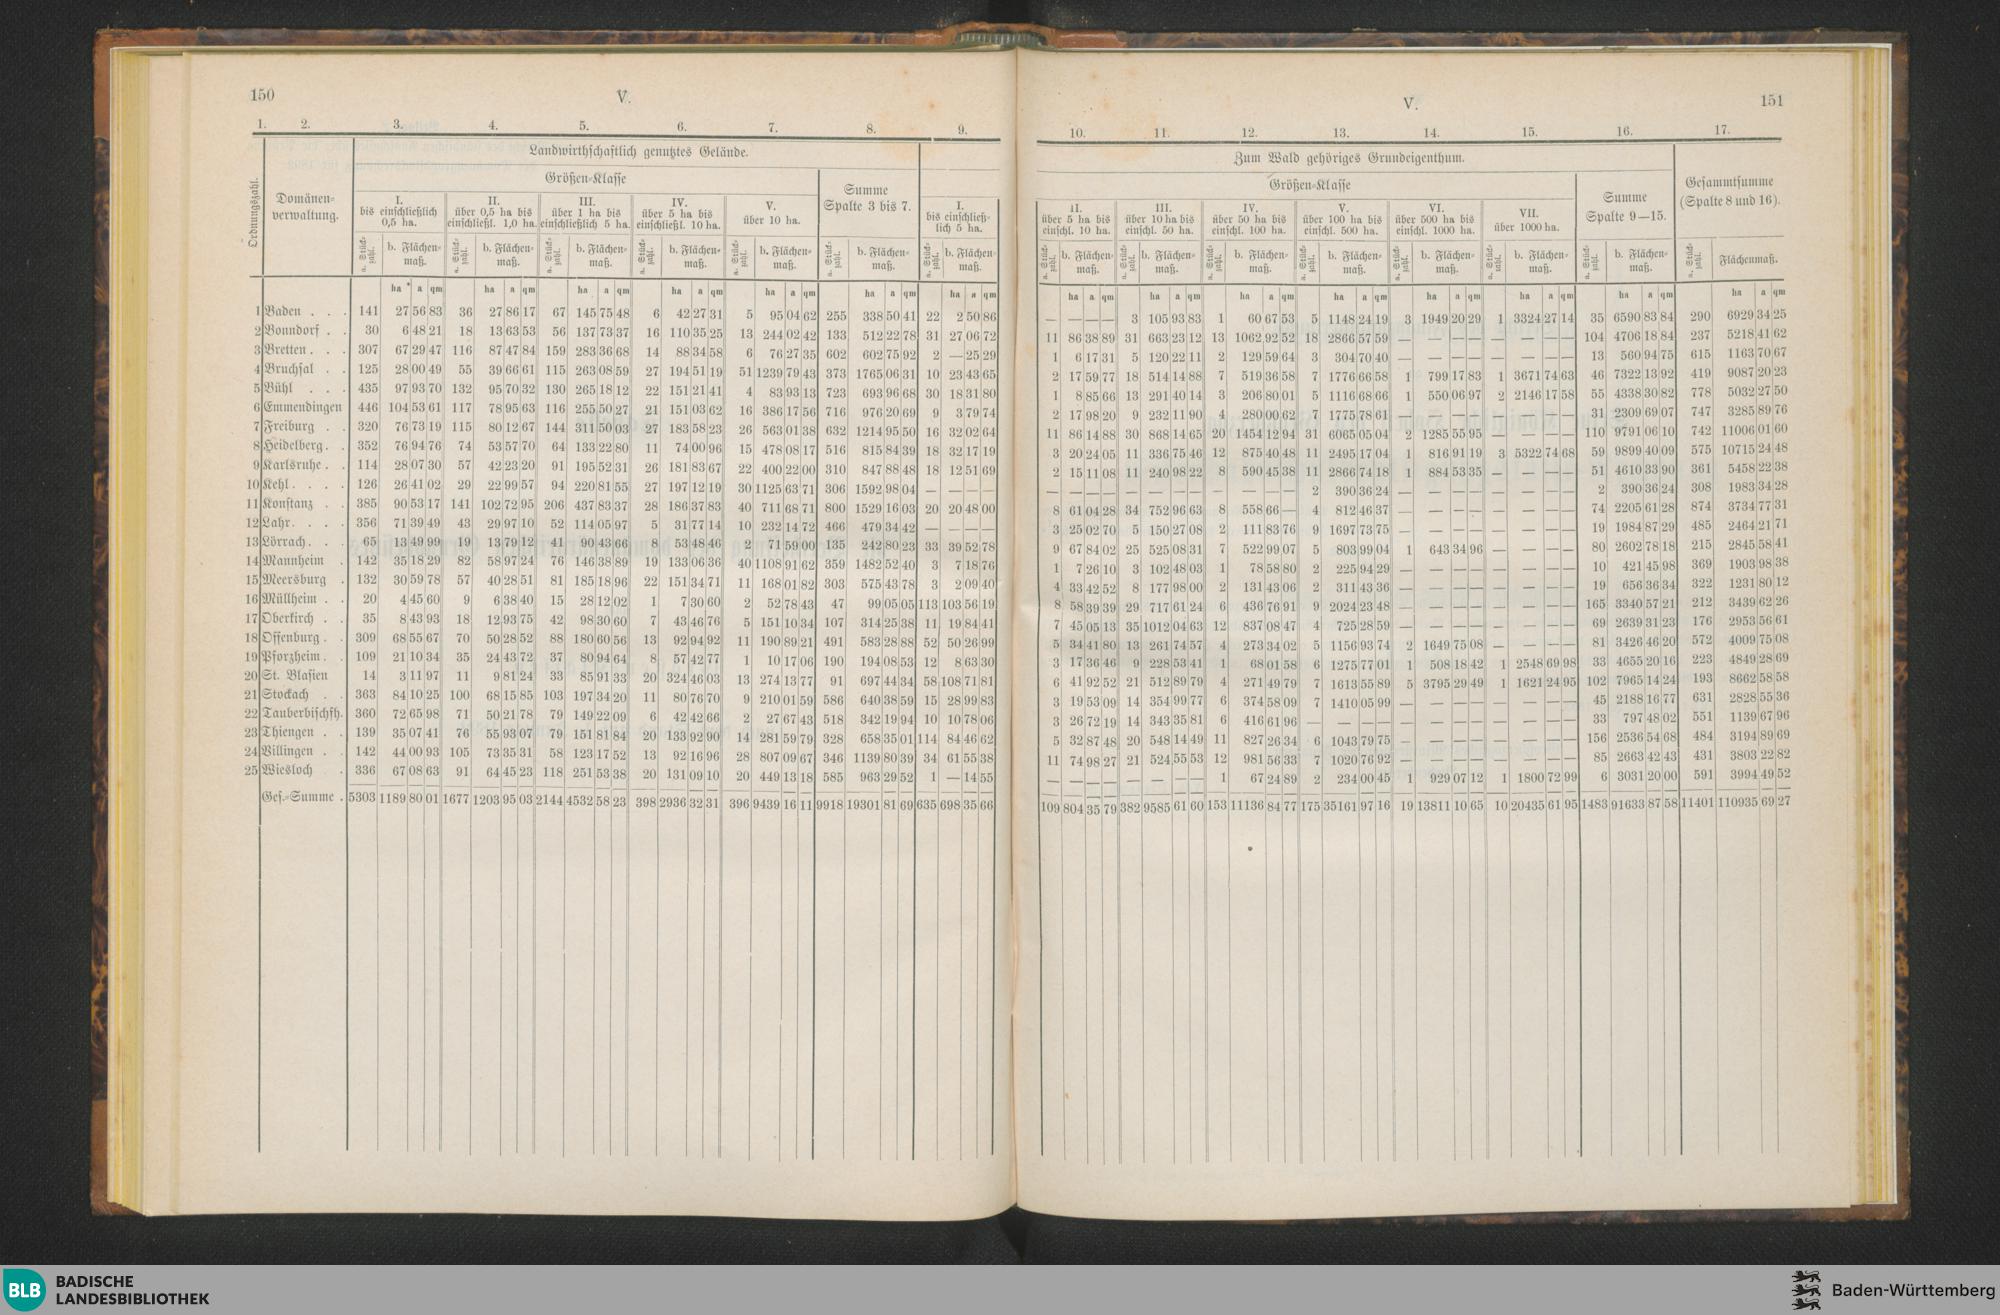 150
V.
1. 2. 3. 4. 5. 6. 7. 8. 9.
Ordnungszahl.
Domänen-
verwaltung.
Landwirthschaftlich genutztes Gelände.
Größen-Klasse
I.
bis einschließlich
0,5 ha.
II.
über 0,5 ha bis
einschließl. 1,0 ha.
III.
über 1 ha bis
einschließlich 5 ha.
IV.
über 5 ha bis
einschließl. 10 ha.
V.
über 10 ha.
Summe
Spalte 3 bis 7.
I.
bis einschließ-
lich 5 ha.
a. Stück-
zahl.
b. Flächen-
maß.
ha a qm
1 Baden . . . 141 27 56 83 36 27 86 17 67 145 75 48 6 42 27 31 5 95 04 62 255 338 50 41 22 2 50 86
2 Bonndorf . . 30 6 48 21 18 13 63 53 56 137 73 37 16 110 35 25 13 244 02 42 133 512 22 78 31 27 06 72
3 Bretten . . . 307 67 29 47 116 87 47 84 159 283 36 68 14 88 34 58 6 76 27 35 602 602 75 92 2 — 25 29
4 Bruchsal . . 125 28 00 49 55 39 66 61 115 263 08 59 27 194 51 19 51 1239 79 43 373 1765 06 31 10 23 43 65
5 Bühl . . 435 97 93 70 132 95 70 32 130 265 18 12 22 151 21 41 4 83 93 13 723 693 96 68 30 18 31 80
6 Emmendingen 446 104 53 61 117 78 95 63 116 255 50 27 21 151 03 62 16 386 17 56 716 976 20 69 9 3 79 74
7 Freiburg . . 320 76 73 19 115 80 12 67 144 311 50 03 27 183 58 23 26 563 01 38 632 1214 95 50 16 32 02 64
8 Heidelberg . . 352 76 94 76 74 53 57 70 64 133 22 80 11 74 00 96 15 478 08 17 516 815 84 39 18 32 17 19
9 Karlsruhe . . 114 28 07 30 57 42 23 20 91 195 52 31 26 181 83 67 22 400 22 00 310 847 88 48 18 12 51 69
10 Kehl . . . . 126 26 41 02 29 22 99 57 94 220 81 55 27 197 12 19 30 1125 63 71 306 1592 98 04 — — — —
11 Konstanz . . 385 90 53 17 141 102 72 95 206 437 83 37 28 186 37 83 40 711 68 71 800 1529 16 03 20 20 48 00
12 Lahr . . . . 356 71 39 49 43 29 97 10 52 114 05 97 5 31 77 14 10 232 14 72 466 479 34 42 — — — —
13 Lörrach . . . 65 13 49 99 19 13 79 12 41 90 43 66 8 53 48 46 2 71 59 00 135 242 80 23 33 39 52 78
14 Mannheim . 142 35 18 29 82 58 97 24 76 146 38 89 19 133 06 36 40 1108 91 62 359 1482 52 40 3 7 18 76
15 Meersburg . 132 30 59 78 57 40 28 51 81 185 18 96 22 151 34 71 11 168 01 82 303 575 43 78 3 2 09 40
16 Müllheim . . 20 4 45 60 9 6 38 40 15 28 12 02 1 7 30 60 2 52 78 43 47 99 05 05 113 103 56 19
17 Oberkirch . . 35 8 43 93 18 12 93 75 42 98 30 60 7 43 46 76 5 151 10 34 107 314 25 38 11 19 84 41
18 Offenburg . . 309 68 55 67 70 50 28 52 88 180 60 56 13 92 94 92 11 190 89 21 491 583 28 88 52 50 26 99
19 Pforzheim . . 109 21 10 34 35 24 43 72 37 80 94 64 8 57 42 77 1 10 17 06 190 194 08 53 12 8 63 30
20 St. Blasien 14 3 11 97 11 9 81 24 33 85 91 33 20 324 46 03 13 274 13 77 91 697 44 34 58 108 71 81
21 Stockach . . 363 84 10 25 100 68 15 85 103 197 34 20 11 80 76 70 9 210 01 59 586 640 38 59 15 28 99 83
22 Tauberbischfh. 360 72 65 98 71 50 21 78 79 149 22 09 6 42 42 66 2 27 67 43 518 342 19 94 10 10 78 06
23 Thiengen . . 139 35 07 41 76 55 93 07 79 151 81 84 20 133 92 90 14 281 59 79 328 658 35 01 114 84 46 62
24 Villingen . . 142 44 00 93 105 73 35 31 58 123 17 52 13 92 16 96 28 807 09 67 346 1139 80 39 34 61 55 38
25 Wiesloch . 336 67 08 63 91 64 45 23 118 251 53 38 20 131 09 10 20 449 13 18 585 963 29 52 1 — 14 55
Ges.-Summe . 5303 1189 80 01 1677 1203 95 03 2144 4532 58 23 398 2936 32 31 396 9439 16 11 9918 19301 81 69 635 698 35 66
V.
151
10. 11. 12. 13. 14. 15. 16. 17.
Zum Wald gehöriges Grundeigenthum.
Größen-Klasse
II.
über 5 ha bis
einschl. 10 ha.
III.
über 10 ha bis
einschl. 50 ha.
IV.
über 50 ha bis
einschl. 100 ha.
V.
über 100 ha bis
einschl. 500 ha.
VI.
über 500 ha bis
einschl. 1000 ha.
VII.
über 1000 ha.
Summe
Spalte 9—15.
Gesammtsumme
(Spalte 8 und 16).
a. Stück-
zahl.
b. Flächen-
maß.
Flächenmaß.
ha a qm
— — — — 3 105 93 83 1 60 67 53 5 1148 24 19 3 1949 20 29 1 3324 27 14 35 6590 83 84 290 6929 34 25
11 86 38 89 31 663 23 12 13 1062 92 52 18 2866 57 59 — — — — — — — — 104 4706 18 84 237 5218 41 62
1 6 17 31 5 120 22 11 2 129 59 64 3 304 70 40 — — — — — — — — 13 560 94 75 615 1163 70 67
2 17 59 77 18 514 14 88 7 519 36 58 7 1776 66 58 1 799 17 83 1 3671 74 63 46 7322 13 92 419 9087 20 23
1 8 85 66 13 291 40 14 3 206 80 01 5 1116 68 66 1 550 06 97 2 2146 17 58 55 4338 30 82 778 5032 27 50
2 17 98 20 9 232 11 90 4 280 00 62 7 1775 78 61 — — — — — — — — 31 2309 69 07 747 3285 89 76
11 86 14 88 30 868 14 65 20 1454 12 94 31 6065 05 04 2 1285 55 95 — — — — 110 9791 06 10 742 11006 01 60
3 20 24 05 11 336 75 46 12 875 40 48 11 2495 17 04 1 816 91 19 3 5322 74 68 59 9899 40 09 575 10715 24 48
2 15 11 08 11 240 98 22 8 590 45 38 11 2866 74 18 1 884 53 35 — — — — 51 4610 33 90 361 5458 22 38
— — — — — — — — — — — — 2 390 36 24 — — — — — — — — 2 390 36 24 308 1983 34 28
8 61 04 28 34 752 96 63 8 558 66 — 4 812 46 37 — — — — — — — — 74 2205 61 28 874 3734 77 31
3 25 02 70 5 150 27 08 2 111 83 76 9 1697 73 75 — — — — — — — — 19 1984 87 29 485 2464 21 71
9 67 84 02 25 525 08 31 7 522 99 07 5 803 99 04 1 643 34 96 — — — — 80 2602 78 18 215 2845 58 41
1 7 26 10 3 102 48 03 1 78 58 80 2 225 94 29 — — — — — — — — 10 421 45 98 369 1903 98 38
4 33 42 52 8 177 98 00 2 131 43 06 2 311 43 36 — — — — — — — — 19 656 36 34 322 1231 80 12
8 58 39 39 29 717 61 24 6 436 76 91 9 2024 23 48 — — — — — — — — 165 3340 57 21 212 3439 62 26
7 45 05 13 35 1012 04 63 12 837 08 47 4 725 28 59 — — — — — — — — 69 2639 31 23 176 2953 56 61
5 34 41 80 13 261 74 57 4 273 34 02 5 1156 93 74 2 1649 75 08 — — — — 81 3426 46 20 572 4009 75 08
3 17 36 46 9 228 53 41 1 68 01 58 6 1275 77 01 1 508 18 42 1 2548 69 98 33 4655 20 16 223 4849 28 69
6 41 92 52 21 512 89 79 4 271 49 79 7 1613 55 89 5 3795 29 49 1 1621 24 95 102 7965 14 24 193 8662 58 58
3 19 53 09 14 354 99 77 6 374 58 09 7 1410 05 99 — — — — — — — — 45 2188 16 77 631 2828 55 36
3 26 72 19 14 343 35 81 6 416 61 96 — — — — — — — — — — — — 33 797 48 02 551 1139 67 96
5 32 87 48 20 548 14 49 11 827 26 34 6 1043 79 75 — — — — — — — — 156 2536 54 68 484 3194 89 69
11 74 98 27 21 524 55 53 12 981 56 33 7 1020 76 92 — — — — — — — — 85 2663 42 43 431 3803 22 82
— — — — — — — — 1 67 24 89 2 234 00 45 1 929 07 12 1 1800 72 99 6 3031 20 00 591 3994 49 52
109 804 35 79 382 9585 61 60 153 11136 84 77 175 35161 97 16 19 13811 10 65 10 20435 61 95 1483 91633 87 58 11401 110935 69 27
BLB
BADISCHE
LANDESBIBLIOTHEK
Baden-Württemberg